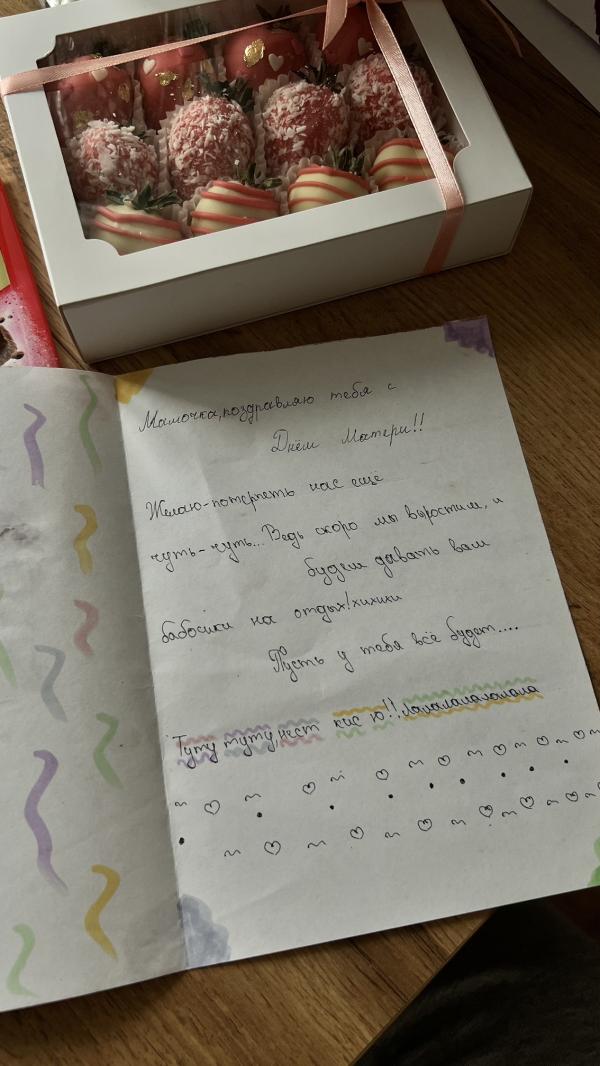 Мамочка, поздравляю тебя с
Днём Матери!!
Желаю-потерпеть нас ещё
чуть-чуть... Ведь скоро мы выростим, и
будем давать вам
бабосики на отдых! хихихи
Пусть у тебя всё будет....
Туту туту, нест кис ю!!, лалалалалалала